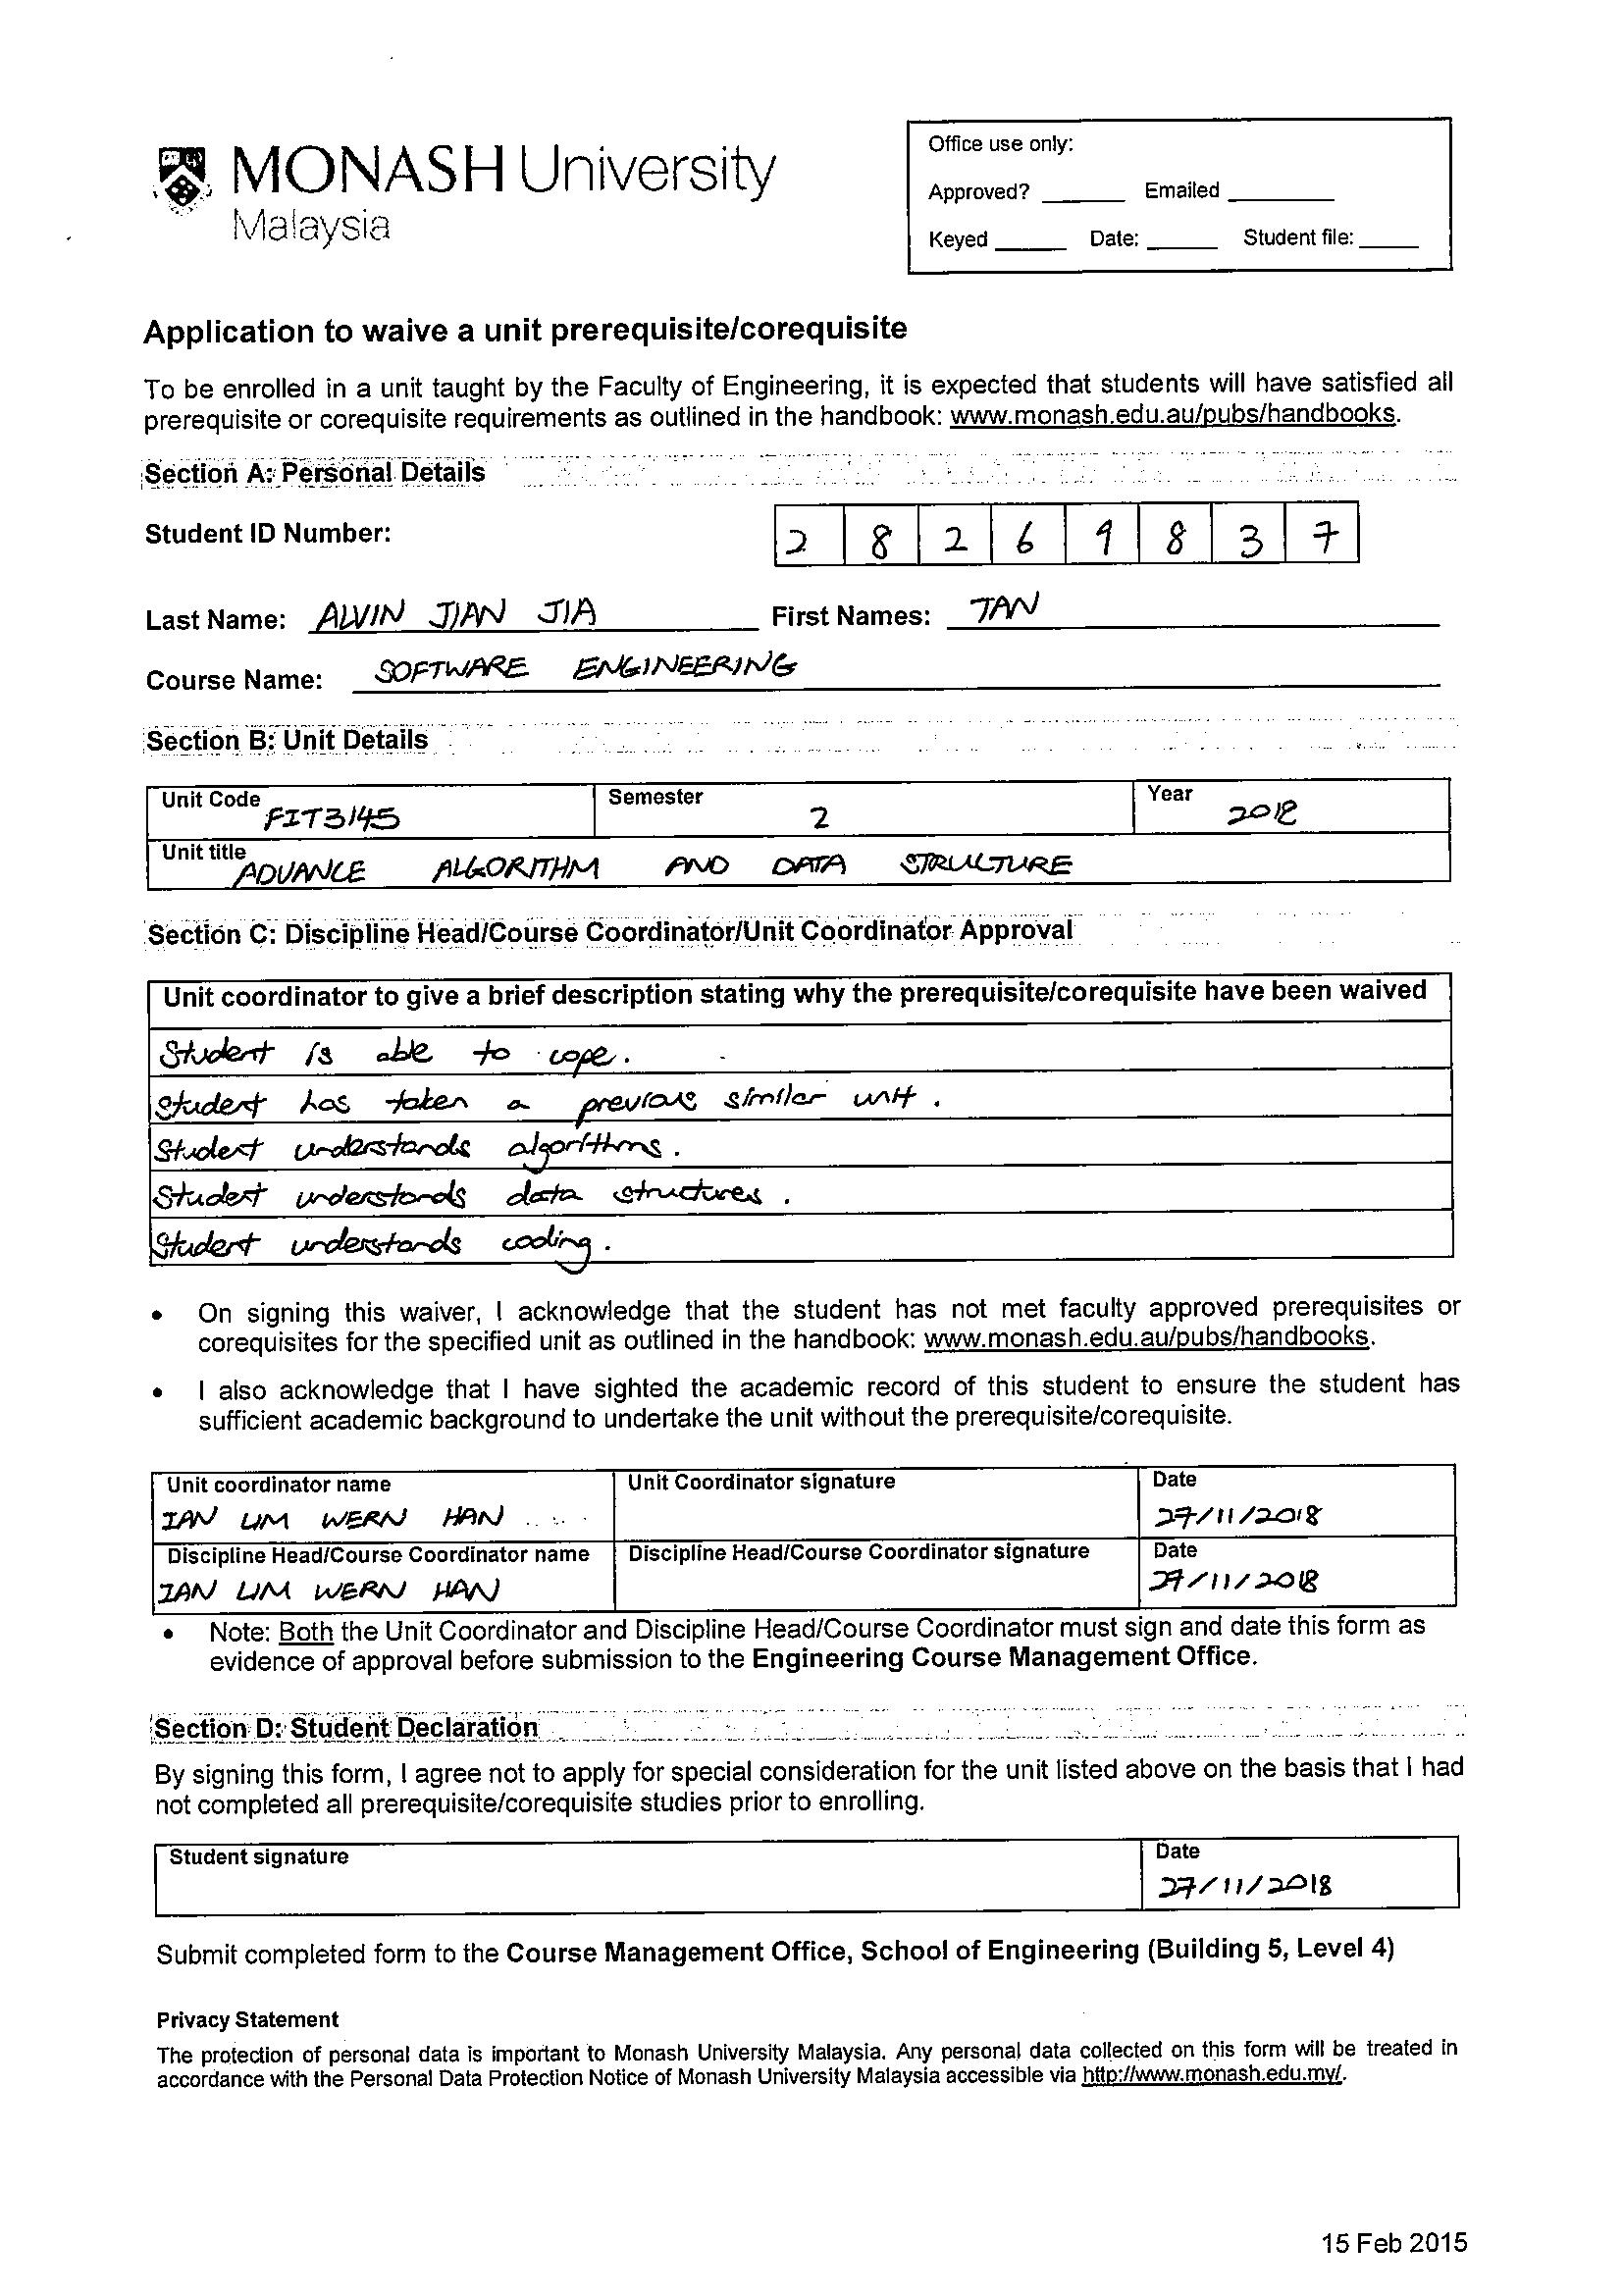 MONASH University
Malaysia
Office use only:
Approved? ______ Emailed ______
Keyed ______ Date: ______ Student file: ______
Application to waive a unit prerequisite/corequisite
To be enrolled in a unit taught by the Faculty of Engineering, it is expected that students will have satisfied all
prerequisite or corequisite requirements as outlined in the handbook: www.monash.edu.au/pubs/handbooks.
Section A: Personal Details
Student ID Number: 2 8 2 6 9 8 3 7
Last Name: ALVIN JIAN JIA First Names: TAN
Course Name: SOFTWARE ENGINEERING
Section B: Unit Details
Unit Code FIT3145 Semester 2 Year 2018
Unit title ADVANCE ALGORITHM AND DATA STRUCTURE
Section C: Discipline Head/Course Coordinator/Unit Coordinator Approval
Unit coordinator to give a brief description stating why the prerequisite/corequisite have been waived
Student is able to cope.
Student has taken a previous similar unit.
Student understands algorithms.
Student understands data structures.
Student understands coding.
• On signing this waiver, I acknowledge that the student has not met faculty approved prerequisites or
corequisites for the specified unit as outlined in the handbook: www.monash.edu.au/pubs/handbooks.
• I also acknowledge that I have sighted the academic record of this student to ensure the student has
sufficient academic background to undertake the unit without the prerequisite/corequisite.
Unit coordinator name Unit Coordinator signature Date
IAN LIM WERN HAN 27/11/2018
Discipline Head/Course Coordinator name Discipline Head/Course Coordinator signature Date
IAN LIM WERN HAN 27/11/2018
• Note: Both the Unit Coordinator and Discipline Head/Course Coordinator must sign and date this form as
evidence of approval before submission to the Engineering Course Management Office.
Section D: Student Declaration
By signing this form, I agree not to apply for special consideration for the unit listed above on the basis that I had
not completed all prerequisite/corequisite studies prior to enrolling.
Student signature Date
27/11/2018
Submit completed form to the Course Management Office, School of Engineering (Building 5, Level 4)
Privacy Statement
The protection of personal data is important to Monash University Malaysia. Any personal data collected on this form will be treated in
accordance with the Personal Data Protection Notice of Monash University Malaysia accessible via http://www.monash.edu.my/.
15 Feb 2015